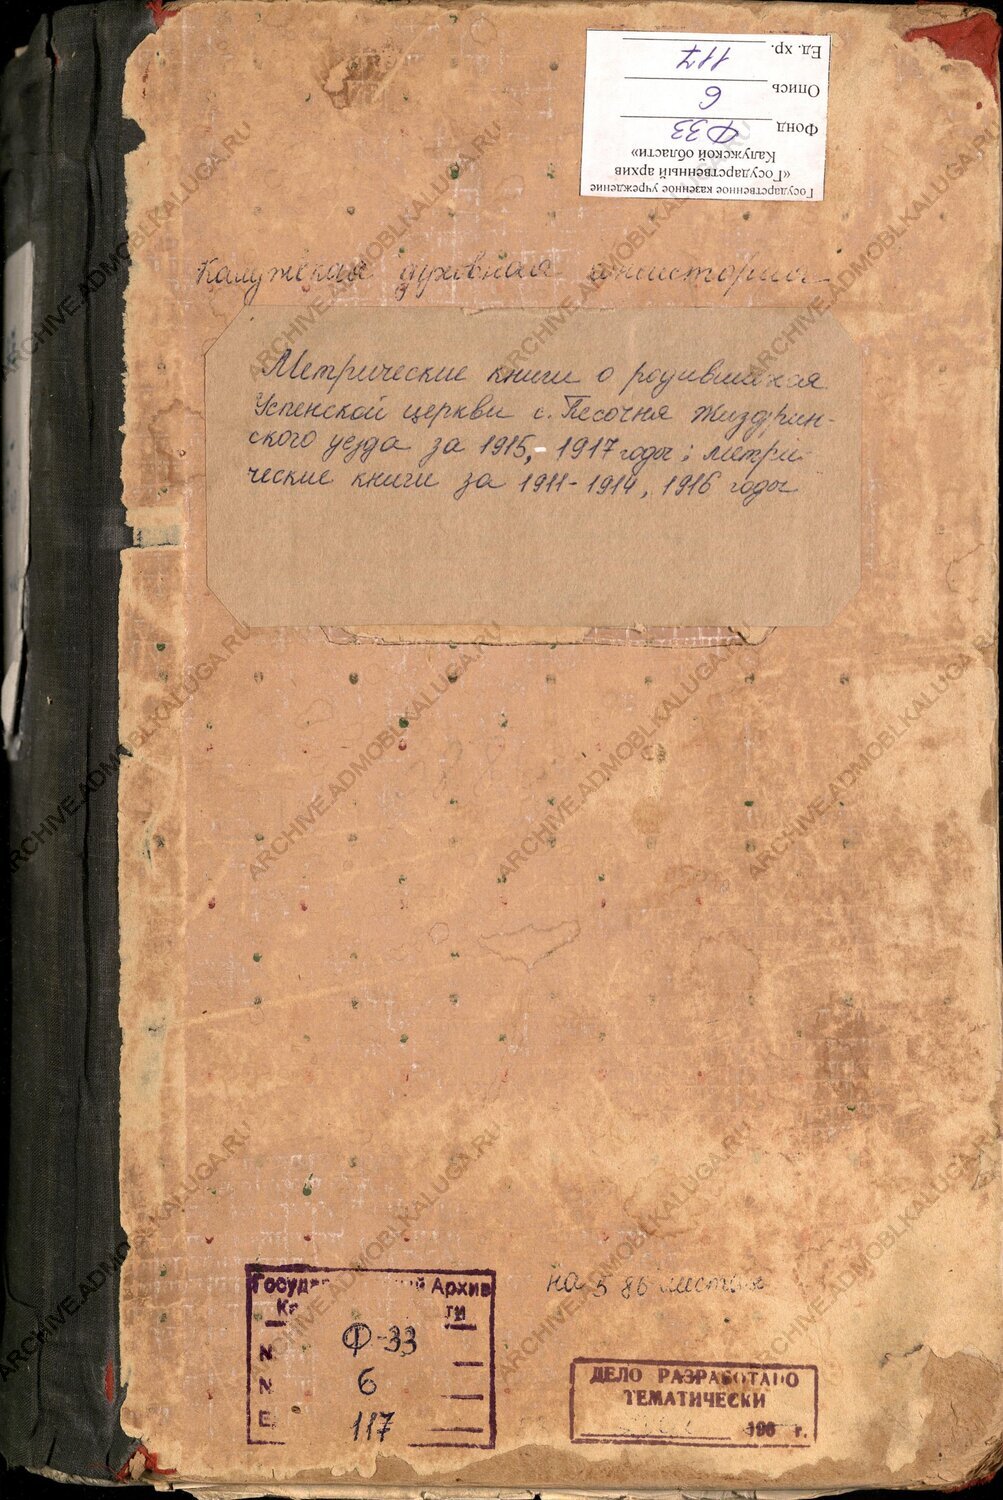 Государственное казенное учреждение
«Государственный архив
Калужской области»
Фонд Ф33
Опись 6
Ед. хр. 117
Калужская духовная консистория
Метрические книги о родившихся
Успенской церкви с. Песочня Жиздрин-
ского уезда за 1915, - 1917 годы; метри-
ческие книги за 1911-1914, 1916 годы
на 586 листах
Архив
Ф-33
6
117
ДЕЛО РАЗРАБОТАНО
ТЕМАТИЧЕСКИ
196 г.
ARCHIVE.ADMOBLKALUGA.RU